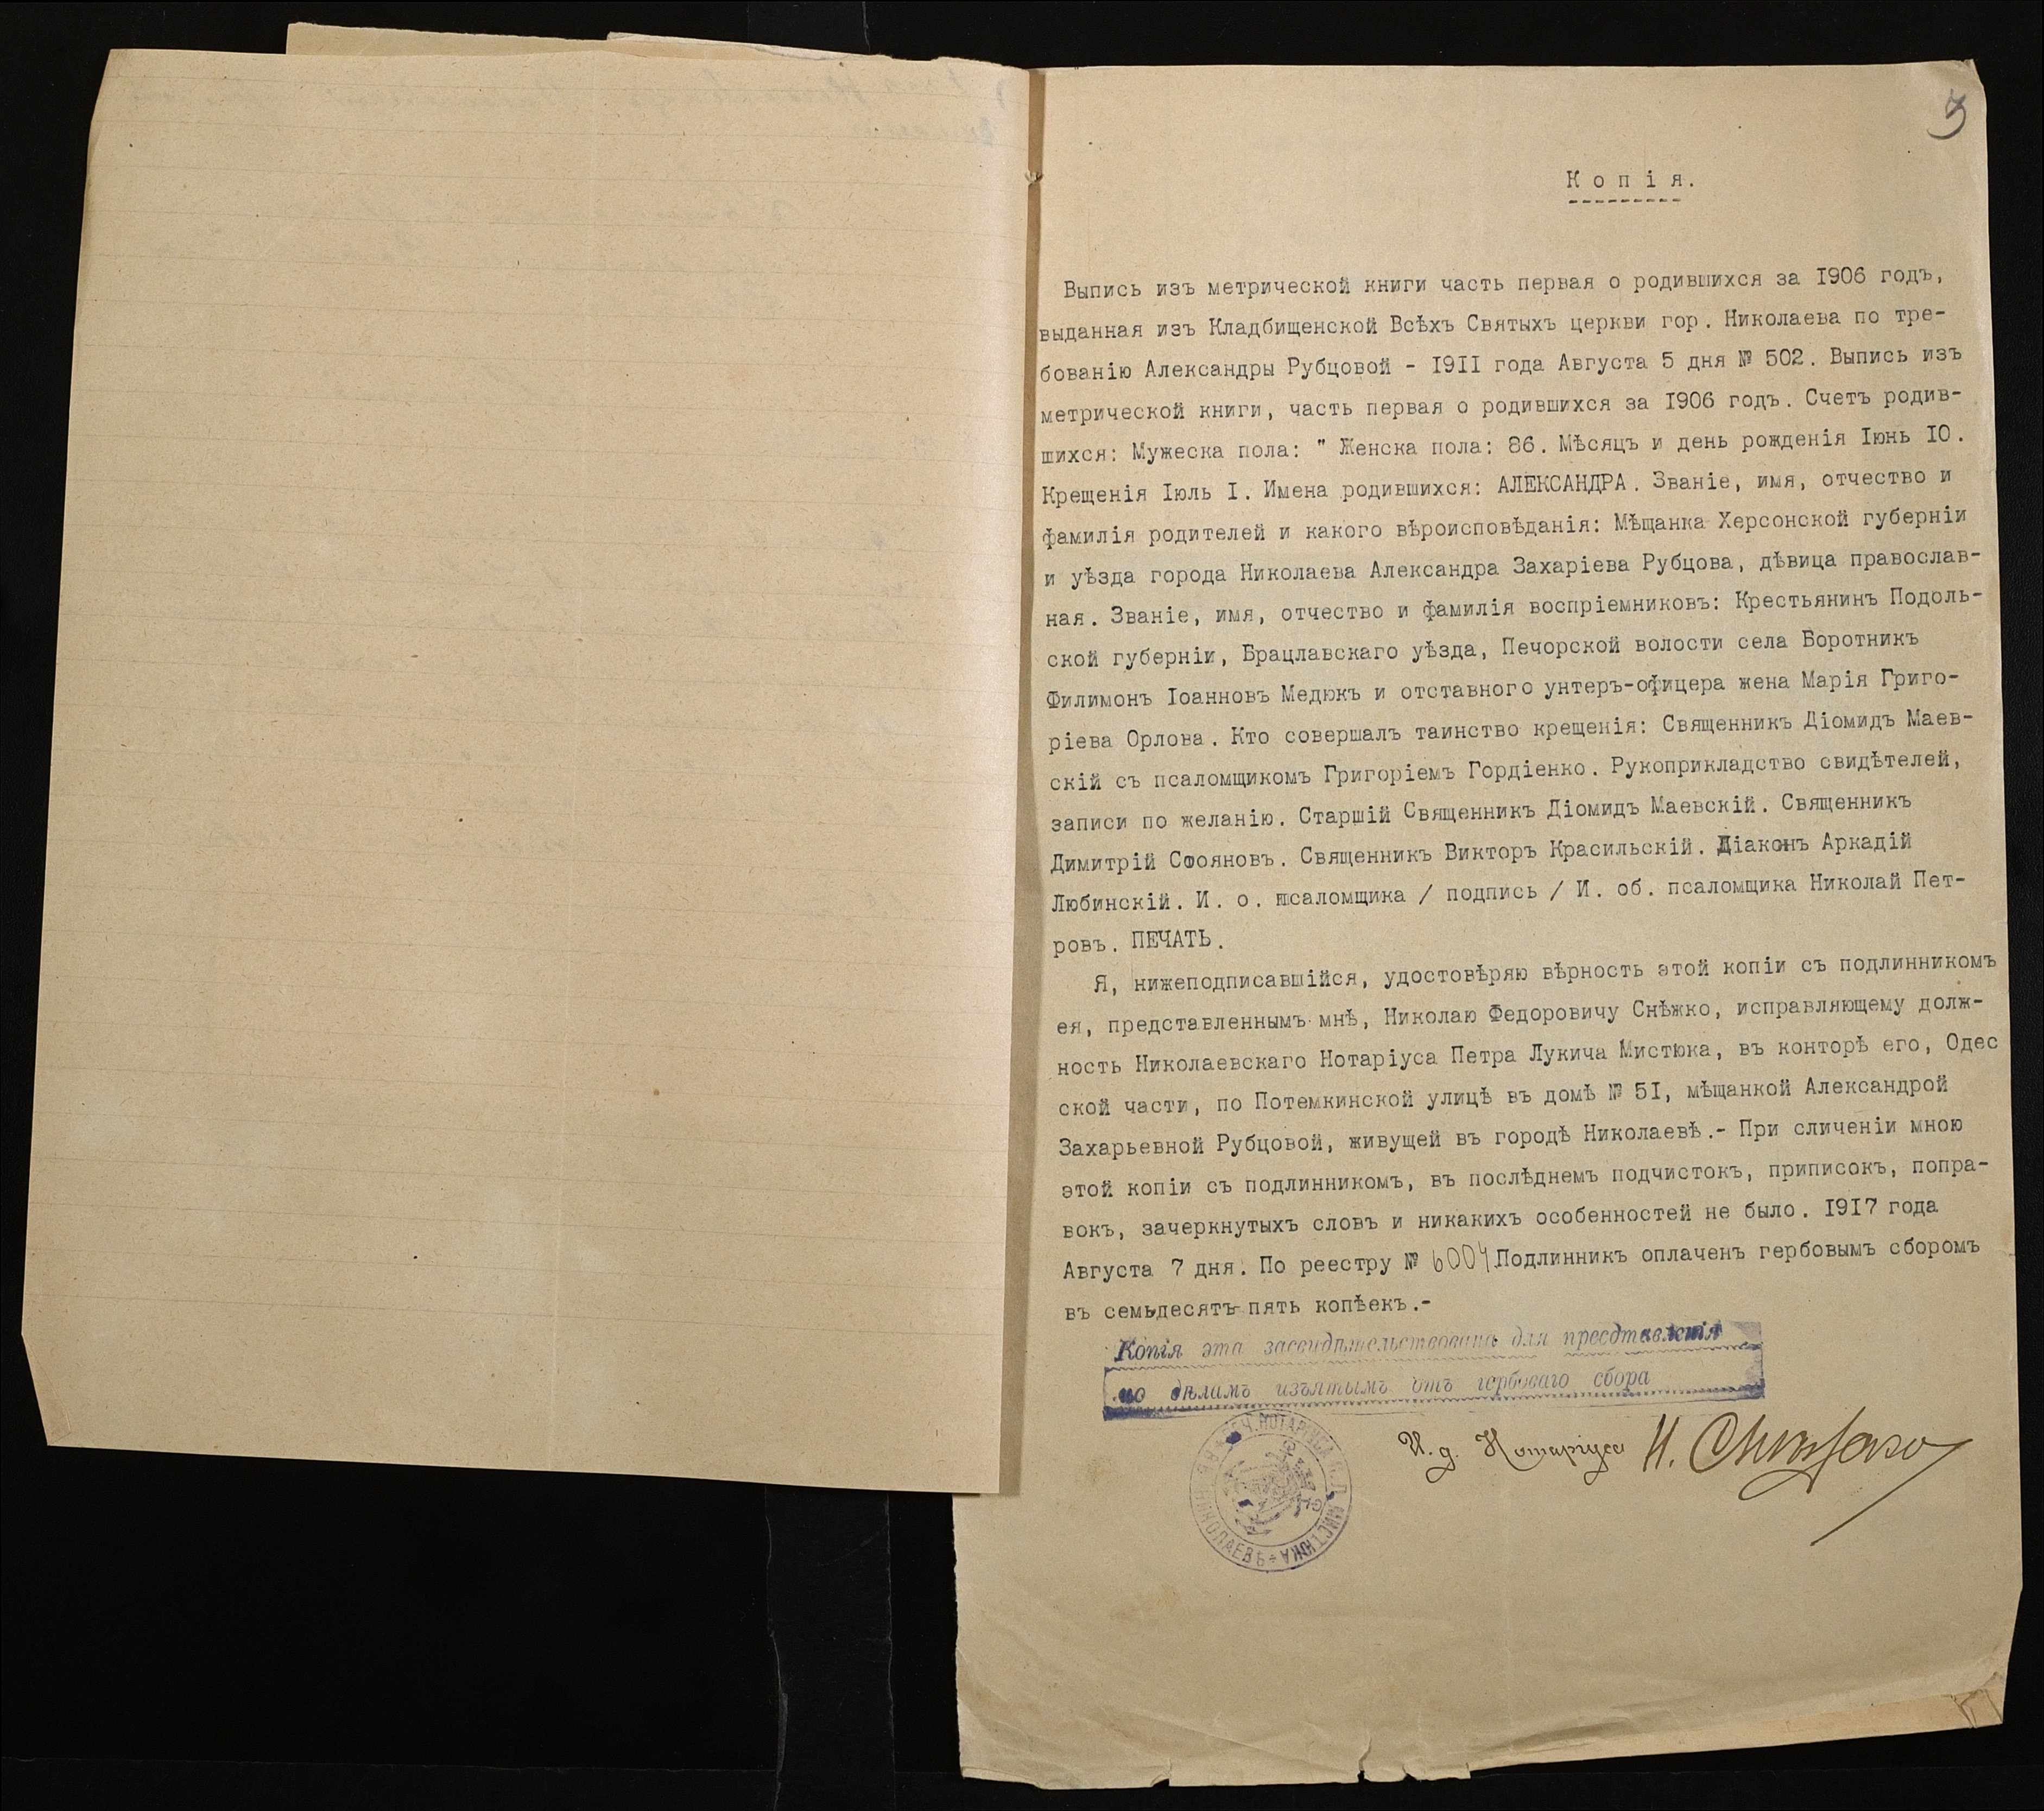 3
Копія.
Выпись изъ метрической книги часть первая о родившихся за 1906 годъ,
выданная изъ Кладбищенской Всѣхъ Святыхъ церкви гор. Николаева по тре-
бованію Александры Рубцовой - 1911 года Августа 5 дня № 502. Выпись изъ
метрической книги, часть первая о родившихся за 1906 годъ. Счетъ родив-
шихся: Мужеска пола: " Женска пола: 86. Мѣсяцъ и день рожденія Іюнь 10.
Крещенія Іюль I. Имена родившихся: АЛЕКСАНДРА. Званіе, имя, отчество и
фамилія родителей и какого вѣроисповѣданія: Мѣщанка Херсонской губерніи
и уѣзда города Николаева Александра Захаріева Рубцова, дѣвица православ-
ная. Званіе, имя, отчество и фамилія воспріемниковъ: Крестьянинъ Подоль-
ской губерніи, Брацлавскаго уѣзда, Печорской волости села Боротникъ
Филимонъ Іоанновъ Медюкъ и отставного унтеръ-офицера жена Марія Григо-
ріева Орлова. Кто совершалъ таинство крещенія: Священникъ Діомидъ Маев-
скій съ псаломщикомъ Григоріемъ Гордіенко. Рукоприкладство свидѣтелей,
записи по желанію. Старшій Священникъ Діомидъ Маевскій. Священникъ
Димитрій Стояновъ. Священникъ Викторъ Красильскій. Діаконъ Аркадій
Любинскій. И. о. псаломщика / подпись / И. об. псаломщика Николай Пет-
ровъ. ПЕЧАТЬ.
Я, нижеподписавшійся, удостовѣряю вѣрность этой копіи съ подлинникомъ
ея, представленнымъ мнѣ, Николаю Федоровичу Снѣжко, исправляющему долж-
ность Николаевскаго Нотаріуса Петра Лукича Мистюка, въ конторѣ его, Одес
ской части, по Потемкинской улицѣ въ домѣ № 51, мѣщанкой Александрой
Захарьевной Рубцовой, живущей въ городѣ Николаевѣ.- При сличеніи мною
этой копіи съ подлинникомъ, въ послѣднемъ подчистокъ, приписокъ, попра-
вокъ, зачеркнутыхъ словъ и никакихъ особенностей не было. 1917 года
Августа 7 дня. По реестру № 6004 Подлинникъ оплаченъ гербовымъ сборомъ
въ семьдесятъ пять копѣекъ.-
Копія эта засвидѣтельствована для представленія
по дѣламъ изъятымъ отъ гербоваго сбора
И. д. Нотаріуса Н. Снѣжко
НОТАРІУСА П. Л. МИСТЮКА * НИКОЛАЕВЪ